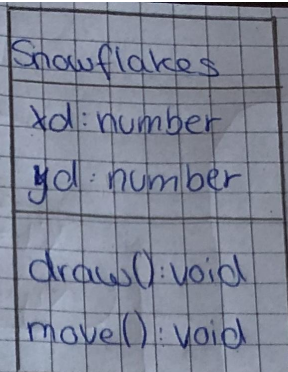 Snowflakes
xd: number
yd: number
draw(): void
move(): void